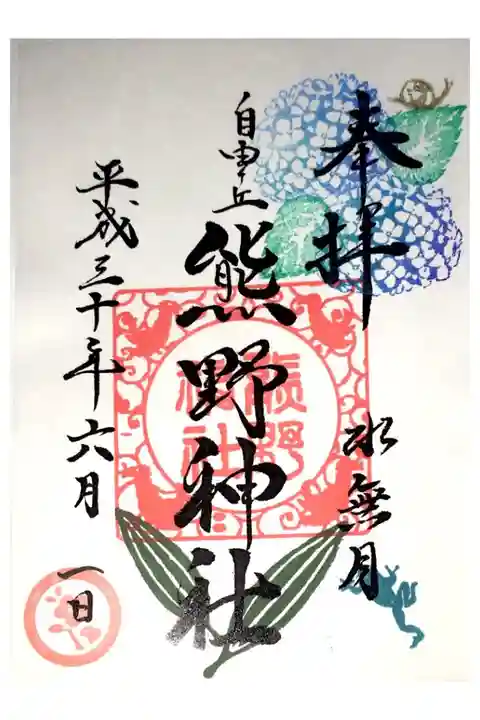 奉拝
水無月
自由ヶ丘
熊野神社
熊野
神社
平成三十年六月
一日